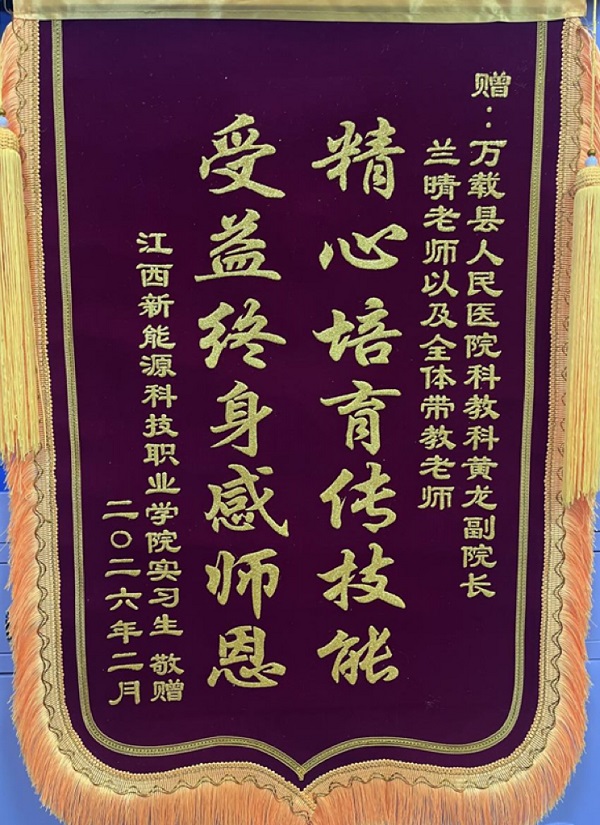 赠：万载县人民医院科教科黄龙副院长
兰晴老师以及全体带教老师
精心培育传技能
受益终身感师恩
江西新能源科技职业学院实习生 敬赠
二〇二六年二月